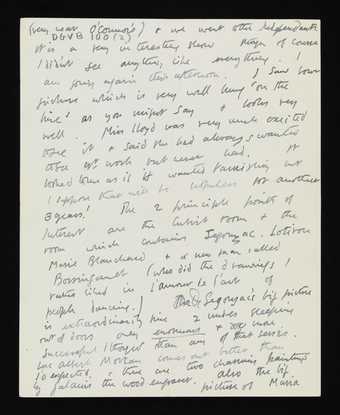 (very near O'Connor's) & we went othe Independants
DGVB 100 (2)
It is a very interesting show tho' of course
I didnt see anything like everything. I
am going again this afternoon. I saw your
picture which is very well hung "on the
line" as you might say & looks very
well. Miss Lloyd was very much excited
to see it & said she had always wanted
to see yr work but never had. It
looked to me as if it wanted varnishing but
I suppose that will be useless for another
3 years! The 2 principle points of
interest are the Cubist room & the
room which contains Segonzac. Lotiron
Marie Blanchard & a new man called
Bossingault (who did the drawings I
rather liked in L'amour de l'art of
people dancing.) Segonzac's big picture
is extraordinarily fine 2 nudes sleeping
out of doors only enormous &
successful I thought than any of that series.
Luc Albert Moreau comes out better than
I expected, & there are two charming paintings
by Galanis the wood engraver. also the big
picture of Maria